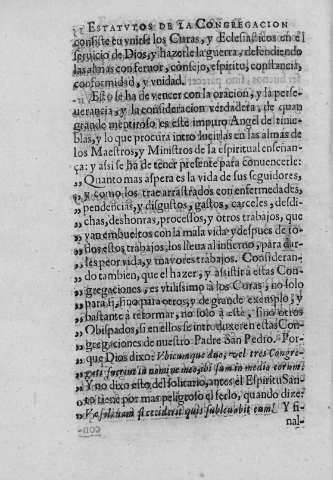 ESTATVTOS DE LA CONGREGACION
consiste en vnirse los Curas, y Eclesiasticos en el
seruicio de Dios, y hazerle la guerra, defendiendo
las almas con feruor, consejo, espiritu, constancia,
conformidad, y vnidad.
Esto se ha de vencer con la oracion, y la perse-
uerancia, y la consideracion verdadera, de quan
grande mentiroso es este impuro Angel de tinie-
blas, y lo que procura introducirlas en las almas de
los Maestros, y Ministros de la espiritual enseñan-
ça: y assi se ha de tener presente para convencerle:
Quanto mas aspera es la vida de sus seguidores,
„ y como los trae arrastrados con enfermedades,
„ pendencias, y disgustos, gastos, carceles, desdi-
„ chas, deshonras, processos, y otros trabajos, que
„ van embueltos con la mala vida y despues de to-
„ dos estos trabajos, los lleua al infierno, para dar-
„ les peor vida, y mayores trabajos. Consideran-
„ do tambien, que el hazer, y assistir à estas Con-
„ gregaciones, es vtilissimo à los Curas, no solo
„ para si, sino para otros, y de grande exemplo, y
„ bastante à reformar, no solo à este, sino otros
„ Obispados, si en ellos se introduxeren estas Con-
„ gregaciones de nuestro Padre San Pedro. Por-
„ que Dios dixo: Vbicunque duo, vel tres Congre-
„ gati fuerint in nomine meo, ibi sum in medio eorum:
„ Y no dixo esto del solitario, antes el Espiritu San-
„ to tiene por mas peligroso el serlo, quando dize:
„ Væ soli, nam si ceciderit quis subleuabit eum? Y fi-
nal-